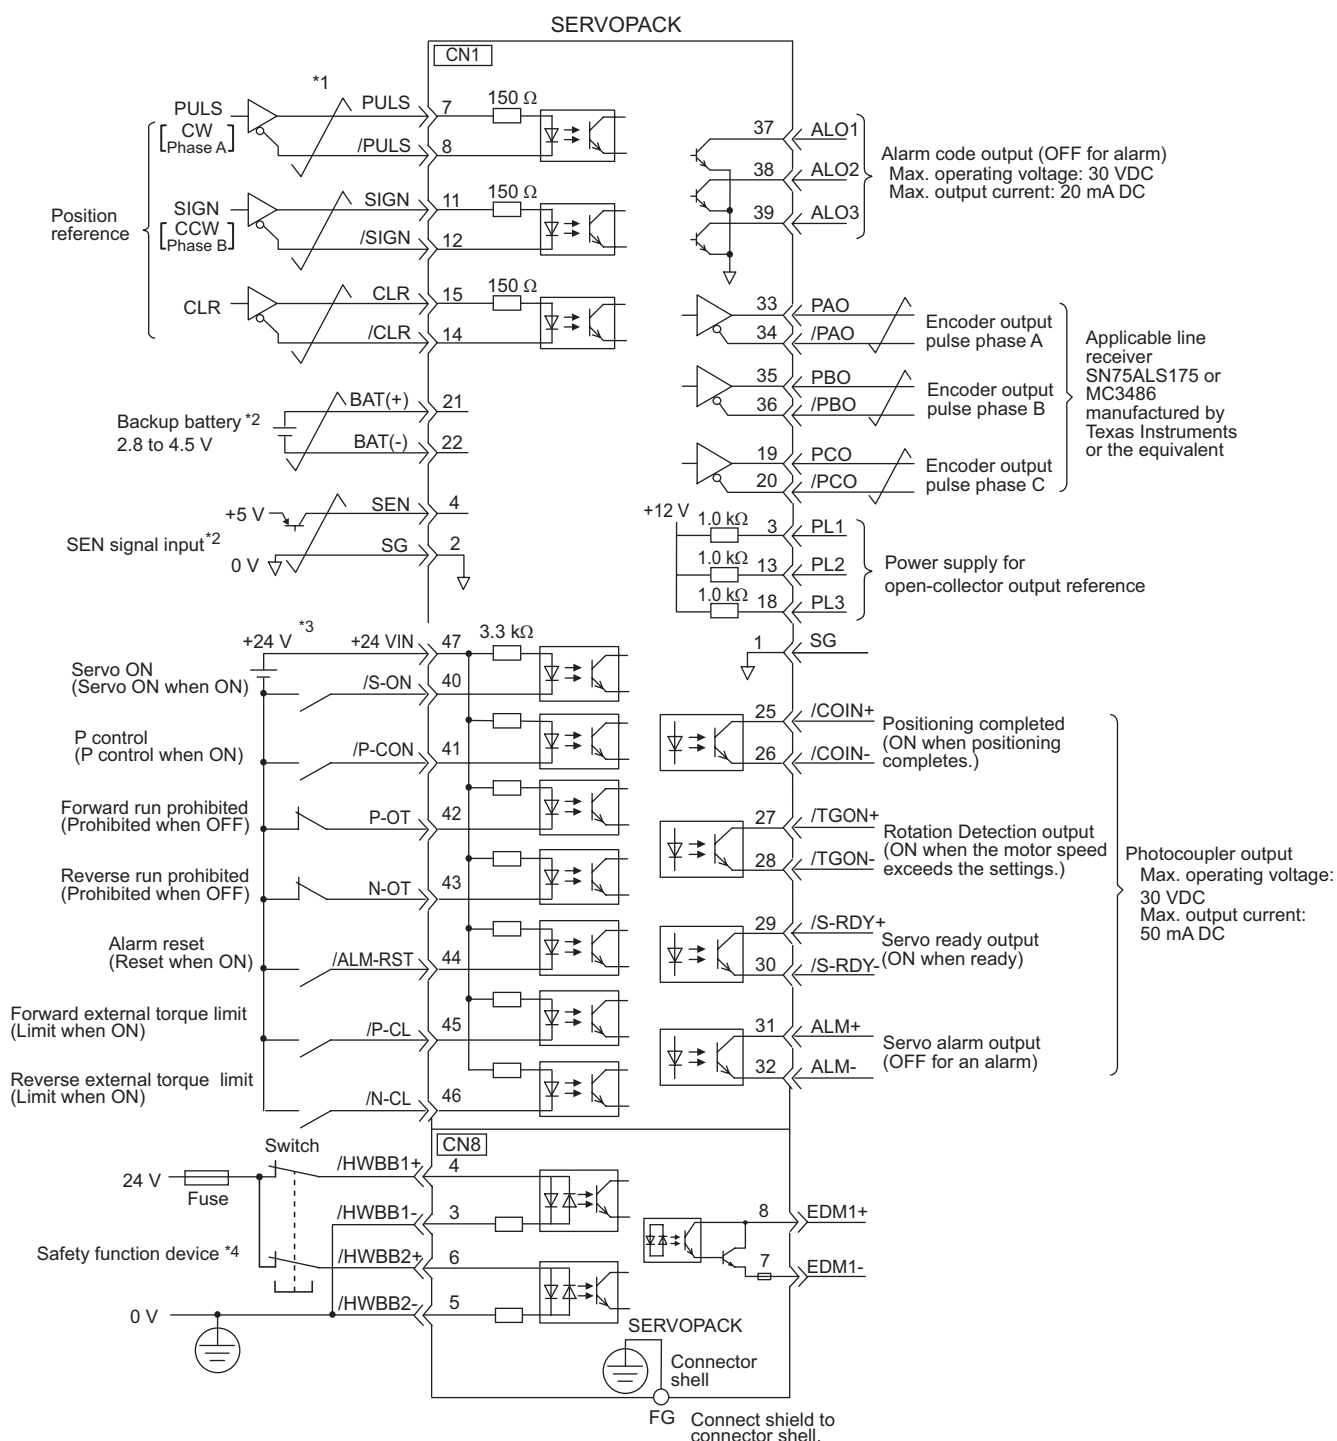 SERVOPACK
CN1
*1
PULS
[CW
Phase A]
PULS
7
150 Ω
/PULS
8
Position
reference
SIGN
[CCW
Phase B]
SIGN
11
150 Ω
/SIGN
12
CLR
CLR
15
150 Ω
/CLR
14
Backup battery *2
2.8 to 4.5 V
BAT(+)
21
BAT(-)
22
+5 V
SEN
4
SEN signal input*2
0 V
SG
2
+24 V
*3
+24 VIN
47
3.3 kΩ
Servo ON
(Servo ON when ON)
/S-ON
40
P control
(P control when ON)
/P-CON
41
Forward run prohibited
(Prohibited when OFF)
P-OT
42
Reverse run prohibited
(Prohibited when OFF)
N-OT
43
Alarm reset
(Reset when ON)
/ALM-RST
44
Forward external torque limit
(Limit when ON)
/P-CL
45
Reverse external torque limit
(Limit when ON)
/N-CL
46
37
ALO1
38
ALO2
39
ALO3
Alarm code output (OFF for alarm)
Max. operating voltage: 30 VDC
Max. output current: 20 mA DC
33
PAO
34
/PAO
Encoder output
pulse phase A
35
PBO
36
/PBO
Encoder output
pulse phase B
19
PCO
20
/PCO
Encoder output
pulse phase C
Applicable line
receiver
SN75ALS175 or
MC3486
manufactured by
Texas Instruments
or the equivalent
+12 V
1.0 kΩ
3
PL1
1.0 kΩ
13
PL2
1.0 kΩ
18
PL3
Power supply for
open-collector output reference
1
SG
25
/COIN+
26
/COIN-
Positioning completed
(ON when positioning
completes.)
27
/TGON+
28
/TGON-
Rotation Detection output
(ON when the motor speed
exceeds the settings.)
29
/S-RDY+
30
/S-RDY-
Servo ready output
(ON when ready)
31
ALM+
32
ALM-
Servo alarm output
(OFF for an alarm)
Photocoupler output
Max. operating voltage:
30 VDC
Max. output current:
50 mA DC
CN8
Switch
24 V
Fuse
/HWBB1+
4
/HWBB1-
3
Safety function device *4
/HWBB2+
6
/HWBB2-
5
0 V
8
EDM1+
7
EDM1-
SERVOPACK
Connector
shell
FG
Connect shield to
connector shell.